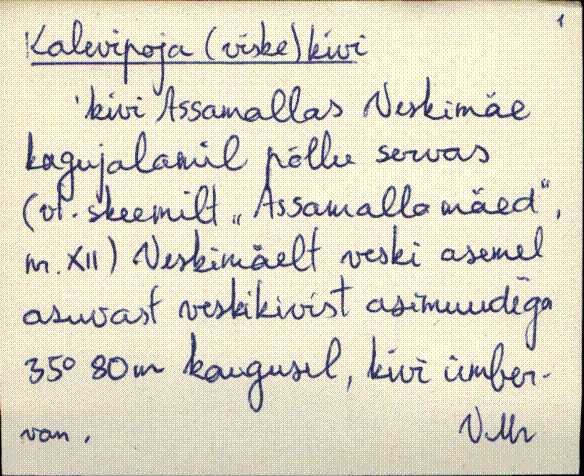 1
Kalevipoja (viske)kivi
'kivi Assamallas Veskimäe
kagujalamil põllu servas
(vt. skeemilt „Assamalla mäed",
nr. XII) Veskimäelt veski asemel
asuvast veskikivist asimuudiga
35° 80m kaugusel, kivi ümber-
van.